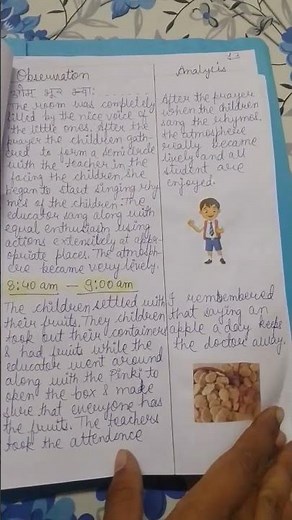 13
Observation
ओम भूर्व स्वः
The room was completely
filled by the nice voice of
the little ones. After the
prayer the children gath
ered to form a semicircle
with the teacher in the
facing the children, she
began to start singing rhy
mes of the children. The
educator sang along with
equal enthusiasm using
actions extensitely at appr
opriate places. The atmosph
ere became very lively.
8:40 am - 9:00 am
The children settled with
their fruits. They children
took out their containers
& had fruits while the
educator went around
along with the Pinki to
open the box & make
sure that everyone has
the fruits. The teachers
took the attendence
Analysis
After the prayer
when the children
sang the rhymes.
the atmosphere
really became
lively and all
student are
enjoyed.
I remembered
that saying an
apple a day keeps
the doctor away.